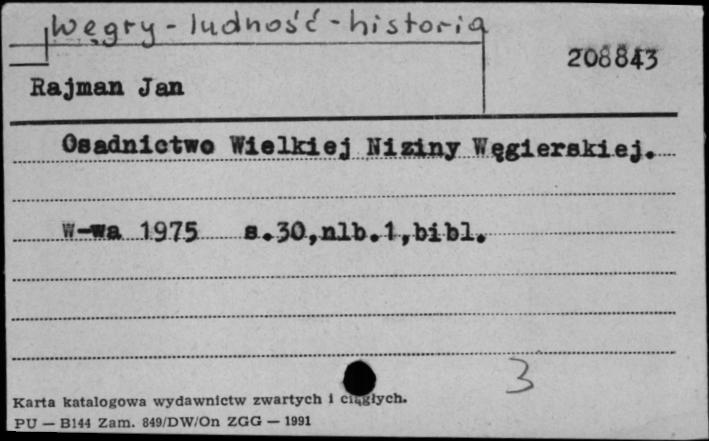 Węgry - ludność - historia
208843
Rajman Jan
Osadnictwo Wielkiej Niziny Węgierskiej.
W-wa 1975 s.30,nlb.1,bibl.
3
Karta katalogowa wydawnictw zwartych i ciągłych.
PU — B144 Zam. 849/DW/On ZGG — 1991